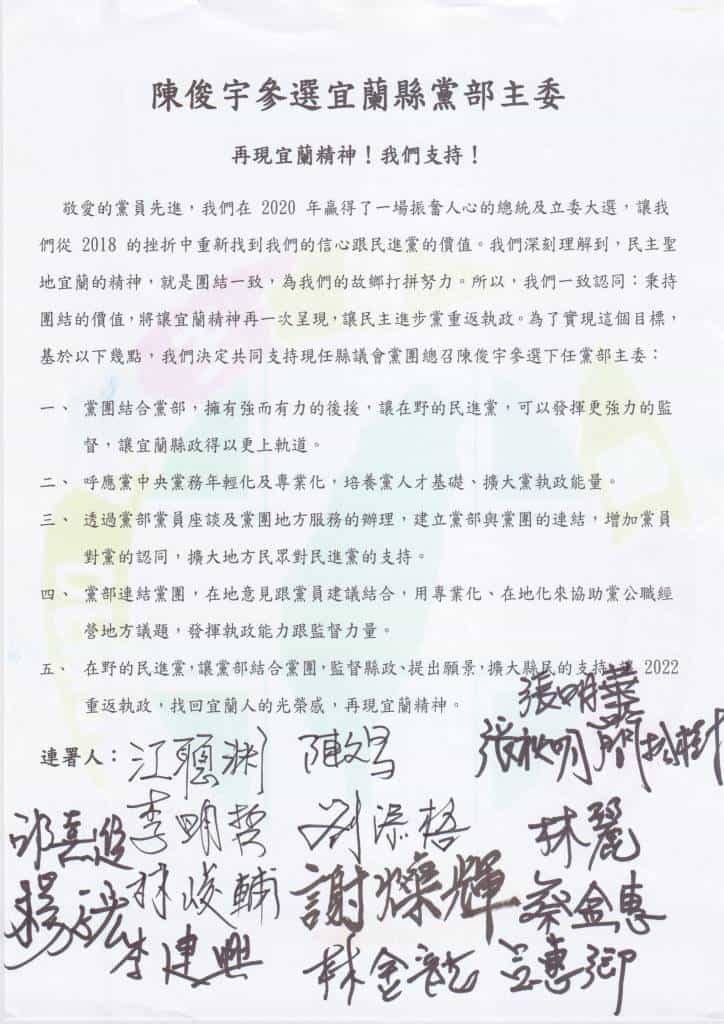 陳俊宇參選宜蘭縣黨部主委
再現宜蘭精神！我們支持！
敬愛的黨員先進，我們在 2020 年贏得了一場振奮人心的總統及立委大選，讓我
們從 2018 的挫折中重新找到我們的信心跟民進黨的價值。我們深刻理解到，民主聖
地宜蘭的精神，就是團結一致，為我們的故鄉打拼努力。所以，我們一致認同：秉持
團結的價值，將讓宜蘭精神再一次呈現，讓民主進步黨重返執政。為了實現這個目標，
基於以下幾點，我們決定共同支持現任縣議會黨團總召陳俊宇參選下任黨部主委：
一、 黨團結合黨部，擁有強而有力的後援，讓在野的民進黨，可以發揮更強力的監
督，讓宜蘭縣政得以更上軌道。
二、 呼應黨中央黨務年輕化及專業化，培養黨人才基礎、擴大黨執政能量。
三、 透過黨部黨員座談及黨團地方服務的辦理，建立黨部與黨團的連結，增加黨員
對黨的認同，擴大地方民眾對民進黨的支持。
四、 黨部連結黨團，在地意見跟黨員建議結合，用專業化、在地化來協助黨公職經
營地方議題，發揮執政能力跟監督力量。
五、 在野的民進黨，讓黨部結合黨團，監督縣政、提出願景，擴大縣民的支持，讓 2022
重返執政，找回宜蘭人的光榮感，再現宜蘭精神。
張明華
連署人：江聰淵 陳文昌 張秋明 簡松樹
李明哲 劉添梧 林麗
林峻輔 謝燦輝 蔡金惠
李建興 林金龍